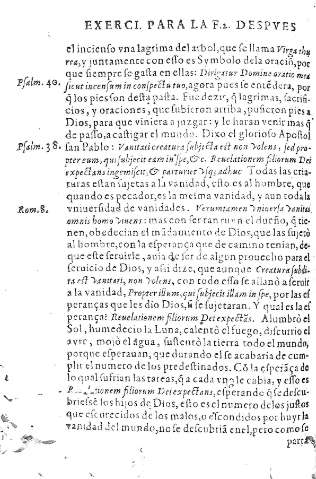 EXERCI. PARA LA F.2. DESPVES
el incienso vna lagrima del arbol, que se llama Virga thu
rra, y juntamente con esso es Symbolo dela oració, por
Psalm. 40. que siempre se gasta en ellas: Dirigatur Domine oratio mea
sicut incensum in conspectu tuo, agora pues se entédera, por
q̃ los pies son desta pasta. Fue dezir, q̃ lagrimas, sacrifi
cios, y oraciones, que subieron arriba, pusieron pies a
Dios, para que viniera a juzgar: y le haran venir mas q̃
de passo, a castigar el mundo. Dixo el glorioso Apostol
Psalm. 38. san Pablo: Vanitati creatura subjecta est non volens, sed pro
pter eum, qui subjecit eam in spe, &c. Reuelationem filiorum Dei
expectans ingemiscit, & parturit vsq; adhuc Todas las cria
turas estan sujetas a la vanidad, esto es al hombre, que
quando es pecador, es la mesma vanidad, y aun toda la
Rom. 8. vniuersidad de vanidades. Veruntamen vniuersa vanitas
omnis homo viuens: mas con ser tan ruyn el dueño, q̃ tie
nen, obedecian el mãdamiento de Dios, que las sujetò
al hombre, con la esperança que de camino tenian, de-
que este seruirle, auia de ser de algun prouecho para el
seruicio de Dios, y assi dize, que aunque Creatura subdi
ta est vanitati, non volens, con todo esso se allanò a seruir
a la vanidad, Propter illum, qui subjecit illam in spe, por las es
peranças que les dio Dios, si se sujetaran. Y qual es la es
perança? Reuelationem filiorum Dei expectãs. Alumbrò el
Sol, humedecio la Luna, calentò el fuego, discurrio el
ayre, mojò el agua, sustentò la tierra todo el mundo,
porque esperauan, que durando el se acabaria de cum-
plir el numero de los predestinados. Cõ la esperãça de
lo qual sufrian las tareas, q̃ a cada vno le cabia, y esso es
Reuelationem filiorum Dei expectans, esperando q̃ se descu-
briesse los hijos de Dios, esto es el numero delos justos
que escurecidos de los malos, o escondidos por huyr la
vanidad del mundo, no se descubriã en el, pero como se
parta